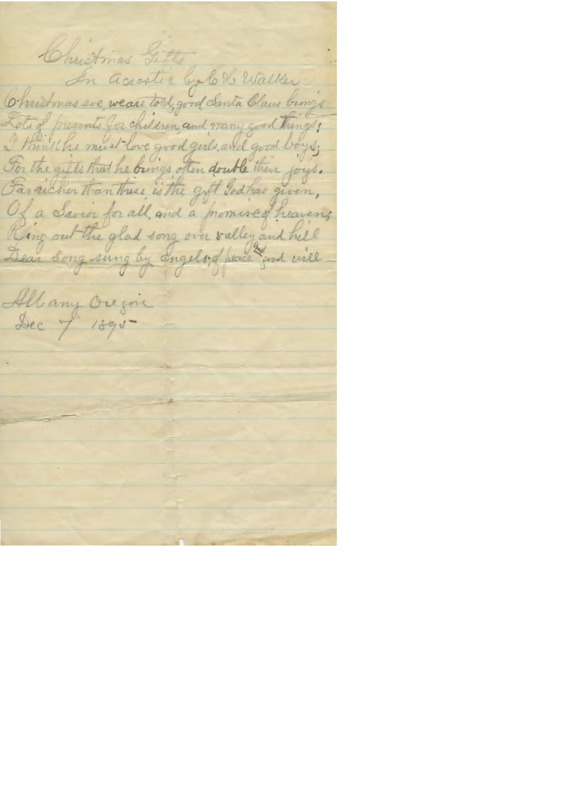 Christmas Gifts
An Acrostic by C L Walker
Christmas eve, we are told, good Santa Claus brings
Lots of presents for children, and many good things;
I think he must love good girls, and good boys,
For the gifts that he brings often double their joys.
Far richer than these is the gift God has given,
Of a Savior for all, and a promise of heaven;
Ring out the glad song over valley and hill
Dear song sung by Angels, of peace and good will
Albany Oregon
Dec 7 1895